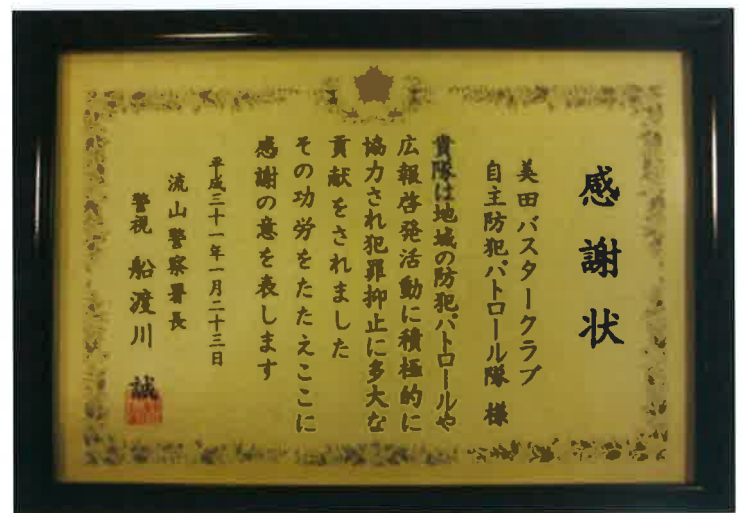 感謝状
美田バスタークラブ
自主防犯パトロール隊 様
貴隊は地域の防犯パトロールや
広報啓発活動に積極的に
協力され犯罪抑止に多大な
貢献をされました
その功労をたたえここに
感謝の意を表します
平成三十一年一月二十三日
流山警察署長
警視 船渡川 誠